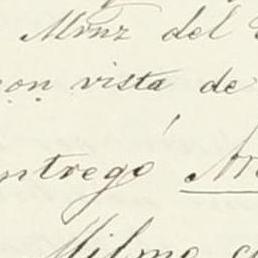 Muñz del
con vista de
entregó Ar
Milmo